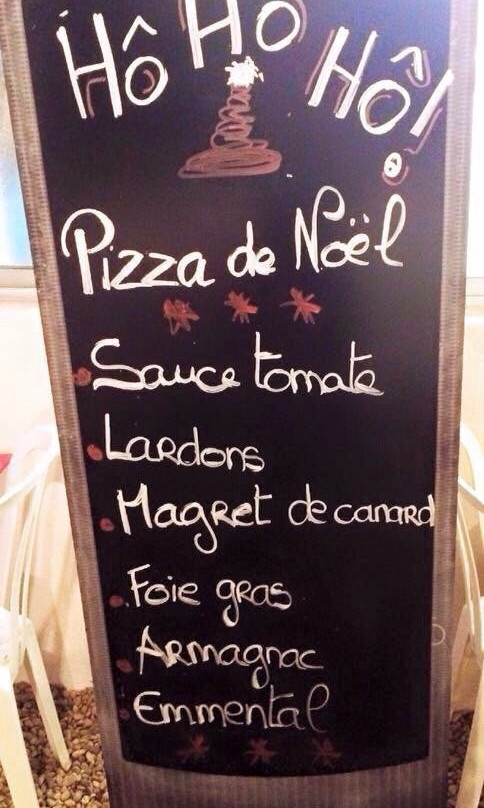 Hô Ho Hô!
Pizza de Noël
Sauce tomate
Lardons
Magret de canard
Foie gras
Armagnac
Emmental